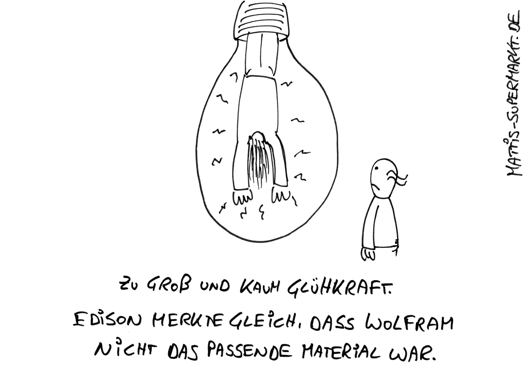 MATTIS-SUPERMARKT.DE
ZU GROß UND KAUM GLÜHKRAFT.
EDISON MERKTE GLEICH, DASS WOLFRAM
NICHT DAS PASSENDE MATERIAL WAR.